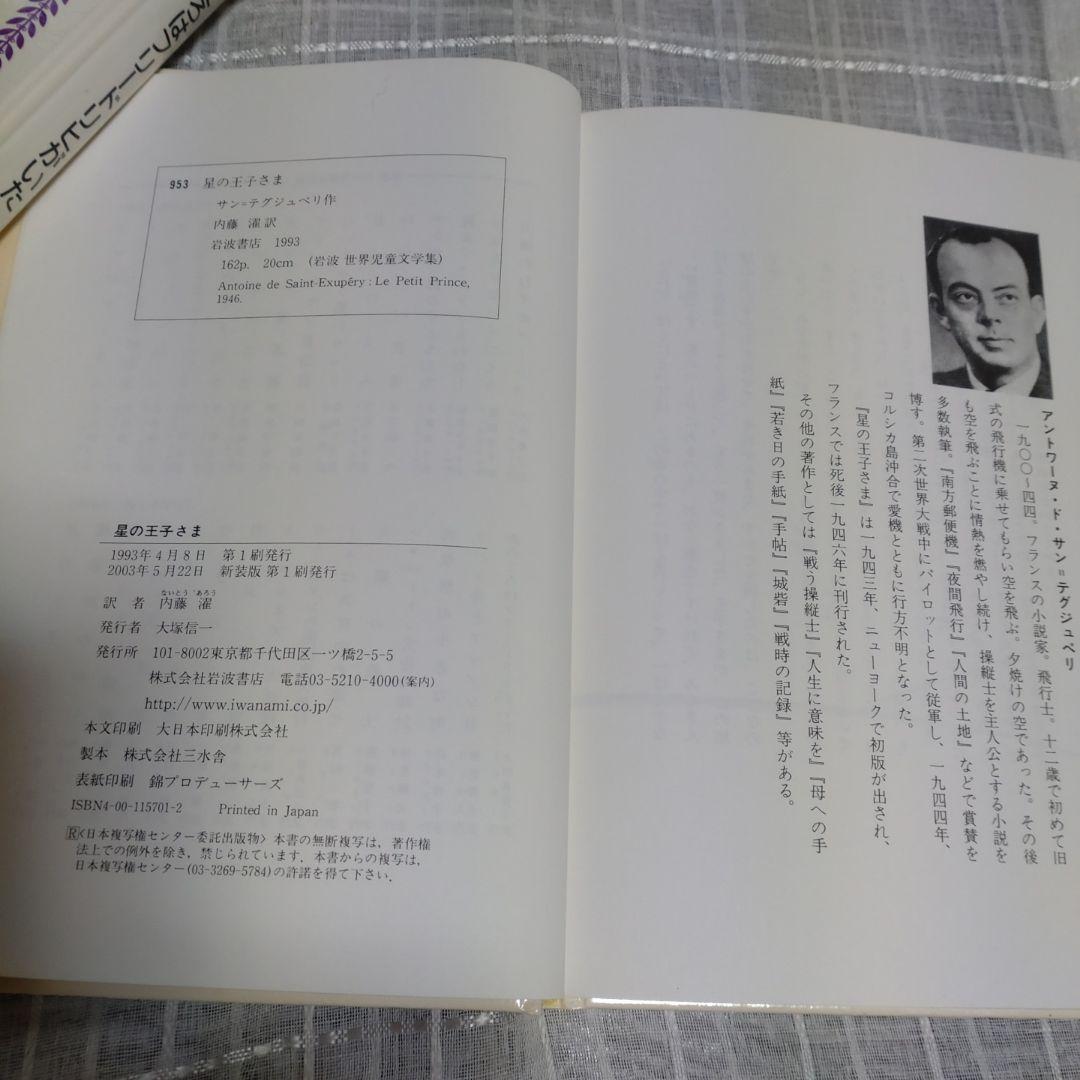 ろはフリードリヒがいた
953 星の王子さま
サン=テグジュペリ作
内藤 濯訳
岩波書店 1993
162p. 20cm (岩波 世界児童文学集)
Antoine de Saint-Exupéry : Le Petit Prince,
1946.
星の王子さま
1993年4月8日 第1刷発行
2003年5月22日 新装版 第1刷発行
ないとう あろう
訳 者 内藤 濯
発行者 大塚信一
発行所 101-8002東京都千代田区一ツ橋2-5-5
株式会社岩波書店 電話03-5210-4000(案内)
http://www.iwanami.co.jp/
本文印刷 大日本印刷株式会社
製本 株式会社三水舎
表紙印刷 錦プロデューサーズ
ISBN4-00-115701-2 Printed in Japan
R〈日本複写権センター委託出版物〉本書の無断複写は,著作権
法上での例外を除き,禁じられています.本書からの複写は,
日本複写権センター(03-3269-5784)の許諾を得て下さい.
アントワーヌ・ド・サン=テグジュペリ
一九〇〇〜四四。フランスの小説家。飛行士。十二歳で初めて旧
式の飛行機に乗せてもらい空を飛ぶ。夕焼けの空であった。その後
も空を飛ぶことに情熱を燃やし続け、操縦士を主人公とする小説を
多数執筆。『南方郵便機』『夜間飛行』『人間の土地』などで賞賛を
博す。第二次世界大戦中にパイロットとして従軍し、一九四四年、
コルシカ島沖合で愛機とともに行方不明となった。
『星の王子さま』は一九四三年、ニューヨークで初版が出され、
フランスでは死後一九四六年に刊行された。
その他の著作としては『戦う操縦士』『人生に意味を』『母への手
紙』『若き日の手紙』『手帖』『城砦』『戦時の記録』等がある。